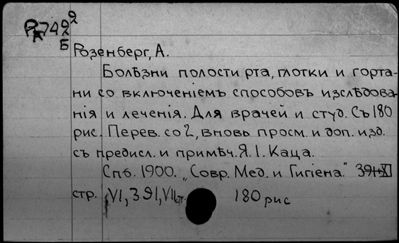 Розенберг, А.
Болѣзни полости рта, глотки и горта-
ни со включеніемъ способовъ изслѣдова-
нія и лечения. Для врачей и студ. Съ 180
рис. Перев. со 2, вновь просм. и доп. изд.
съ предисл. и примѣч. Я. І. Каца.
Спб. 1900. „Совр. Мед. и Гигіена."
стр. VI, 391, VII стр. 180 рис